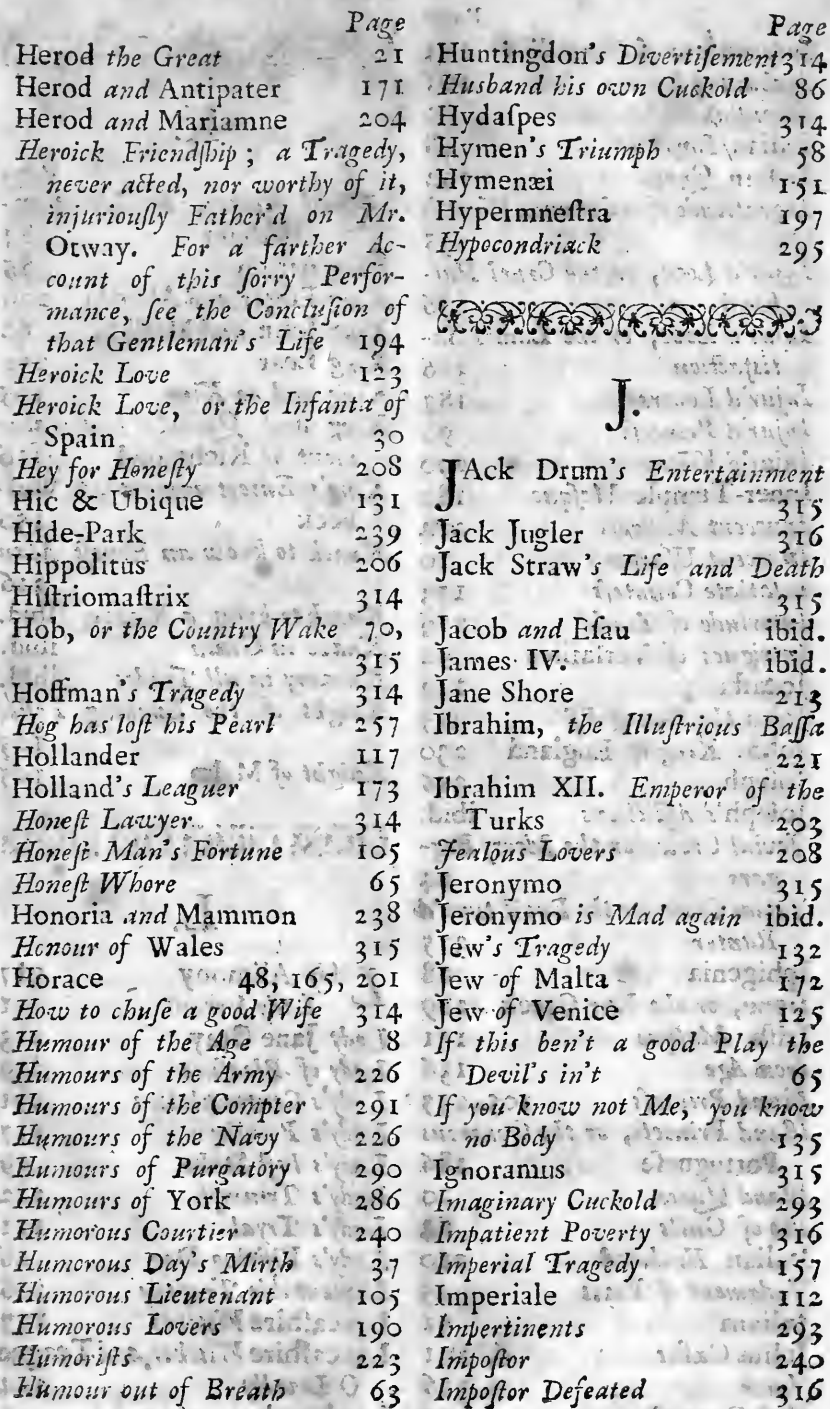 Page
Herod the Great 21
Herod and Antipater 171
Herod and Mariamne 204
Heroick Friendſhip ; a Tragedy,
never acted, nor worthy of it,
injuriouſly Father'd on Mr.
Otway. For a farther Ac-
count of this ſorry Perfor-
mance, ſee the Concluſion of
that Gentleman's Life 194
Heroick Love 123
Heroick Love, or the Infanta of
Spain 30
Hey for Honeſty 208
Hic & Ubique 131
Hide-Park 239
Hippolitus 206
Hiſtriomaſtrix 314
Hob, or the Country Wake 70,
315
Hoffman's Tragedy 314
Hog has loſt his Pearl 257
Hollander 117
Holland's Leaguer 173
Honeſt Lawyer 314
Honeſt Man's Fortune 105
Honeſt Whore 65
Honoria and Mammon 238
Honour of Wales 315
Horace 48, 165, 201
How to chuſe a good Wife 314
Humour of the Age 8
Humours of the Army 226
Humours of the Compter 291
Humours of the Navy 226
Humours of Purgatory 290
Humours of York 286
Humorous Courtier 240
Humorous Day's Mirth 37
Humorous Lieutenant 105
Humorous Lovers 190
Humoriſts 223
Humour out of Breath 63
Page
Huntingdon's Divertiſement 314
Husband his own Cuckold 86
Hydaſpes 314
Hymen's Triumph 58
Hymenæi 151
Hypermneſtra 197
Hypocondriack 295
J.
JAck Drum's Entertainment
315
Jack Jugler 316
Jack Straw's Life and Death
315
Jacob and Eſau ibid.
James IV. ibid.
Jane Shore 213
Ibrahim, the Illuſtrious Baſſa
221
Ibrahim XII. Emperor of the
Turks 203
Jealous Lovers 208
Jeronymo 315
Jeronymo is Mad again ibid.
Jew's Tragedy 132
Jew of Malta 172
Jew of Venice 125
If this ben't a good Play the
Devil's in't 65
If you know not Me, you know
no Body 135
Ignoramus 315
Imaginary Cuckold 293
Impatient Poverty 316
Imperial Tragedy 157
Imperiale 112
Impertinents 293
Impoſtor 240
Impoſtor Defeated 316